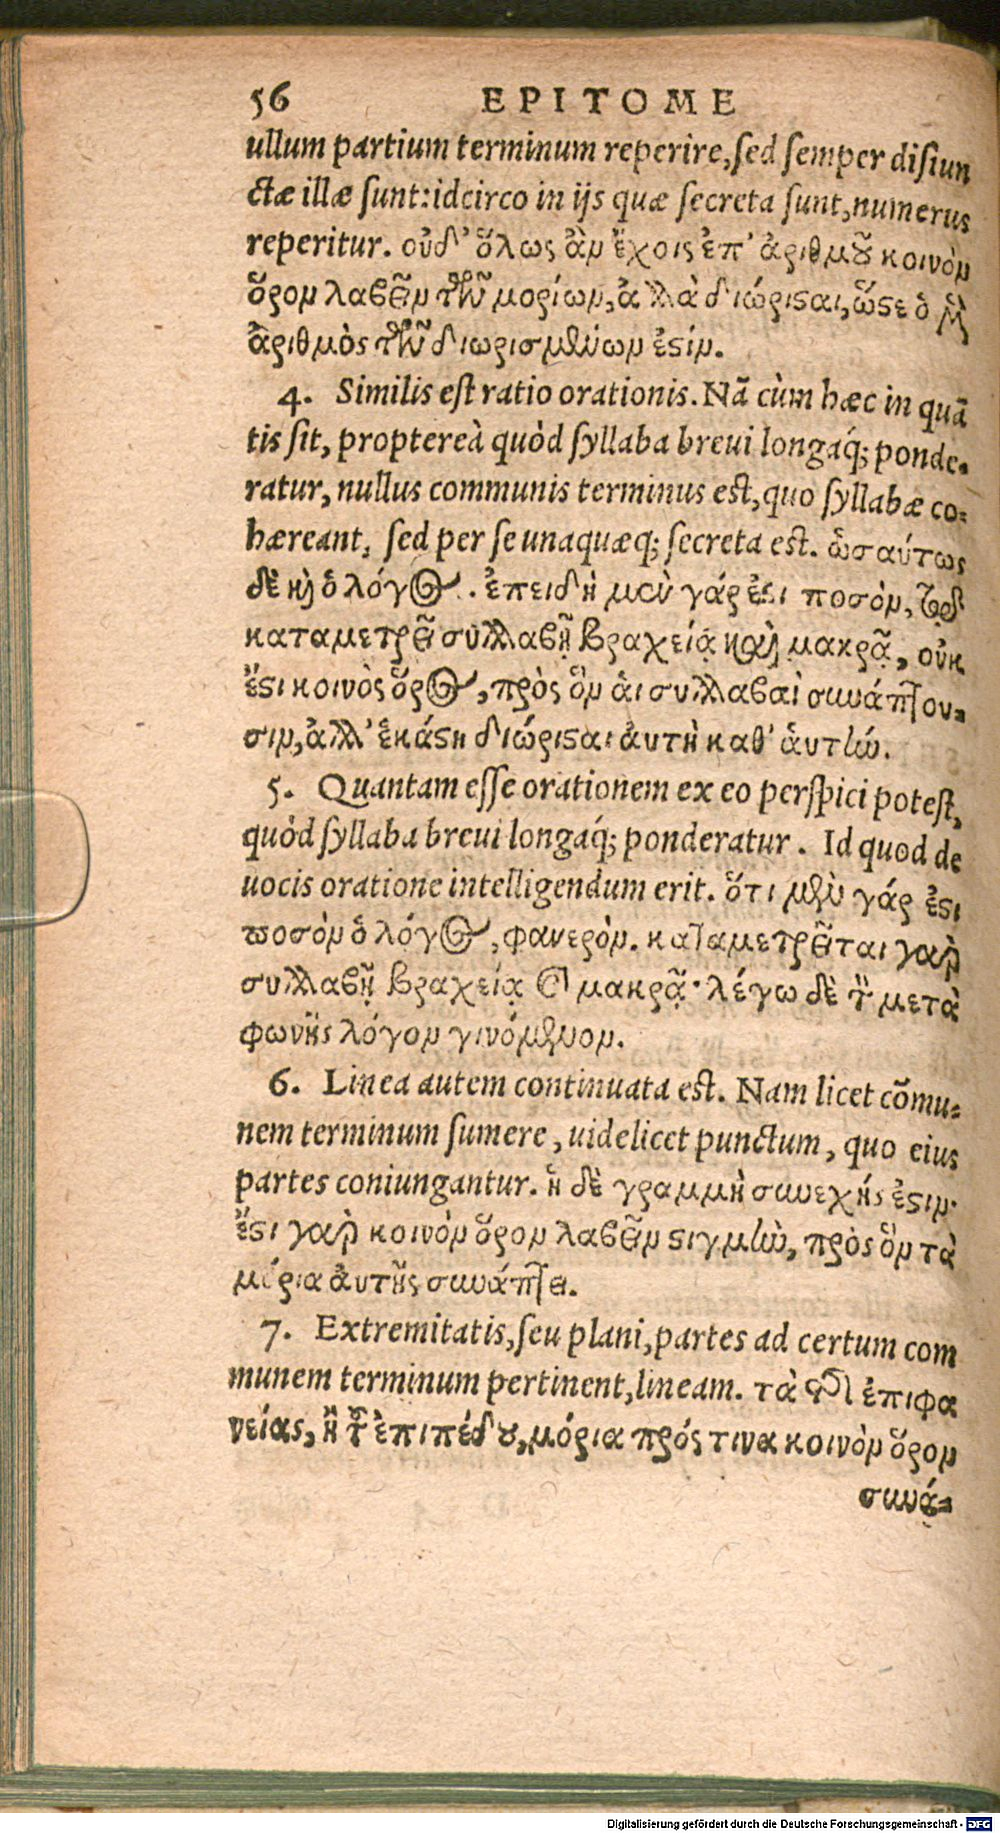 56 EPITOME
ullum partium terminum reperire, sed semper disiun
ctæ illæ sunt: idcirco in ijs quæ secreta sunt, numerus
reperitur. οὐδ' ὅλως ἂν ἔχοις ἐπ' ἀριθμοῦ κοινὸν
ὅρον λαβεῖν τῶν μορίων, ἀλλὰ διώρισται, ὥστε ὁ μὲν
ἀριθμὸς τῶν διωρισμένων ἐστίν.
4. Similis est ratio orationis. Nā cùm hæc in quā
tis sit, proptereà quòd syllaba breui longaq́; ponde-
ratur, nullus communis terminus est, quo syllabæ co-
hæreant, sed per se unaquæq; secreta est. ὡσαύτως
δὲ καὶ ὁ λόγος. ἐπειδὴ μὲν γάρ ἐστι ποσὸν,
καταμετρεῖ συλλαβῇ βραχείᾳ καὶ μακρᾷ, οὐκ
ἔστι κοινὸς ὅρος, πρὸς ὃν ἁι συλλαβαὶ συνάπτου-
σιν, ἀλλ' ἑκάστη διώρισται ἀυτὴ καθ' ἁυτήν.
5. Quantam esse orationem ex eo perspici potest,
quòd syllaba breui longaq́; ponderatur. Id quod de
uocis oratione intelligendum erit. ὅτι μὲν γάρ ἐστι
ποσὸν ὁ λόγος, φανερὸν. καταμετρεῖται γὰρ
συλλαβῇ βραχείᾳ καὶ μακρᾷ· λέγω δὲ τὸν μετὰ
φωνῆς λόγον γινόμενον.
6. Linea autem continuata est. Nam licet cōmu-
nem terminum sumere, uidelicet punctum, quo eius
partes coniungantur. ἡ δὲ γραμμὴ συνεχής ἐστιν·
ἔστι γὰρ κοινὸν ὅρον λαβεῖν στιγμὴν, πρὸς ὃν τὰ
μόρια ἀυτῆς συνάπτει.
7. Extremitatis, seu plani, partes ad certum com
munem terminum pertinent, lineam. τὰ τῆς ἐπιφα
νείας, ἢ τοῦ ἐπιπέδου, μόρια πρός τινα κοινὸν ὅρον
συνά-
Digitalisierung gefördert durch die Deutsche Forschungsgemeinschaft - DFG